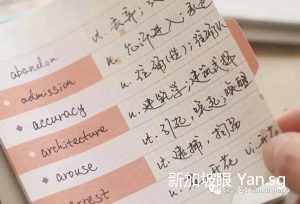 abandon vt.
admission n. 允许进入
accuracy n. 准确(性)；精确性
architecture n. 建筑学，建筑式样
arouse vt. 引起，唤起；唤醒
arrest vt. 逮捕，拘留
新加坡眼 Yan.sg